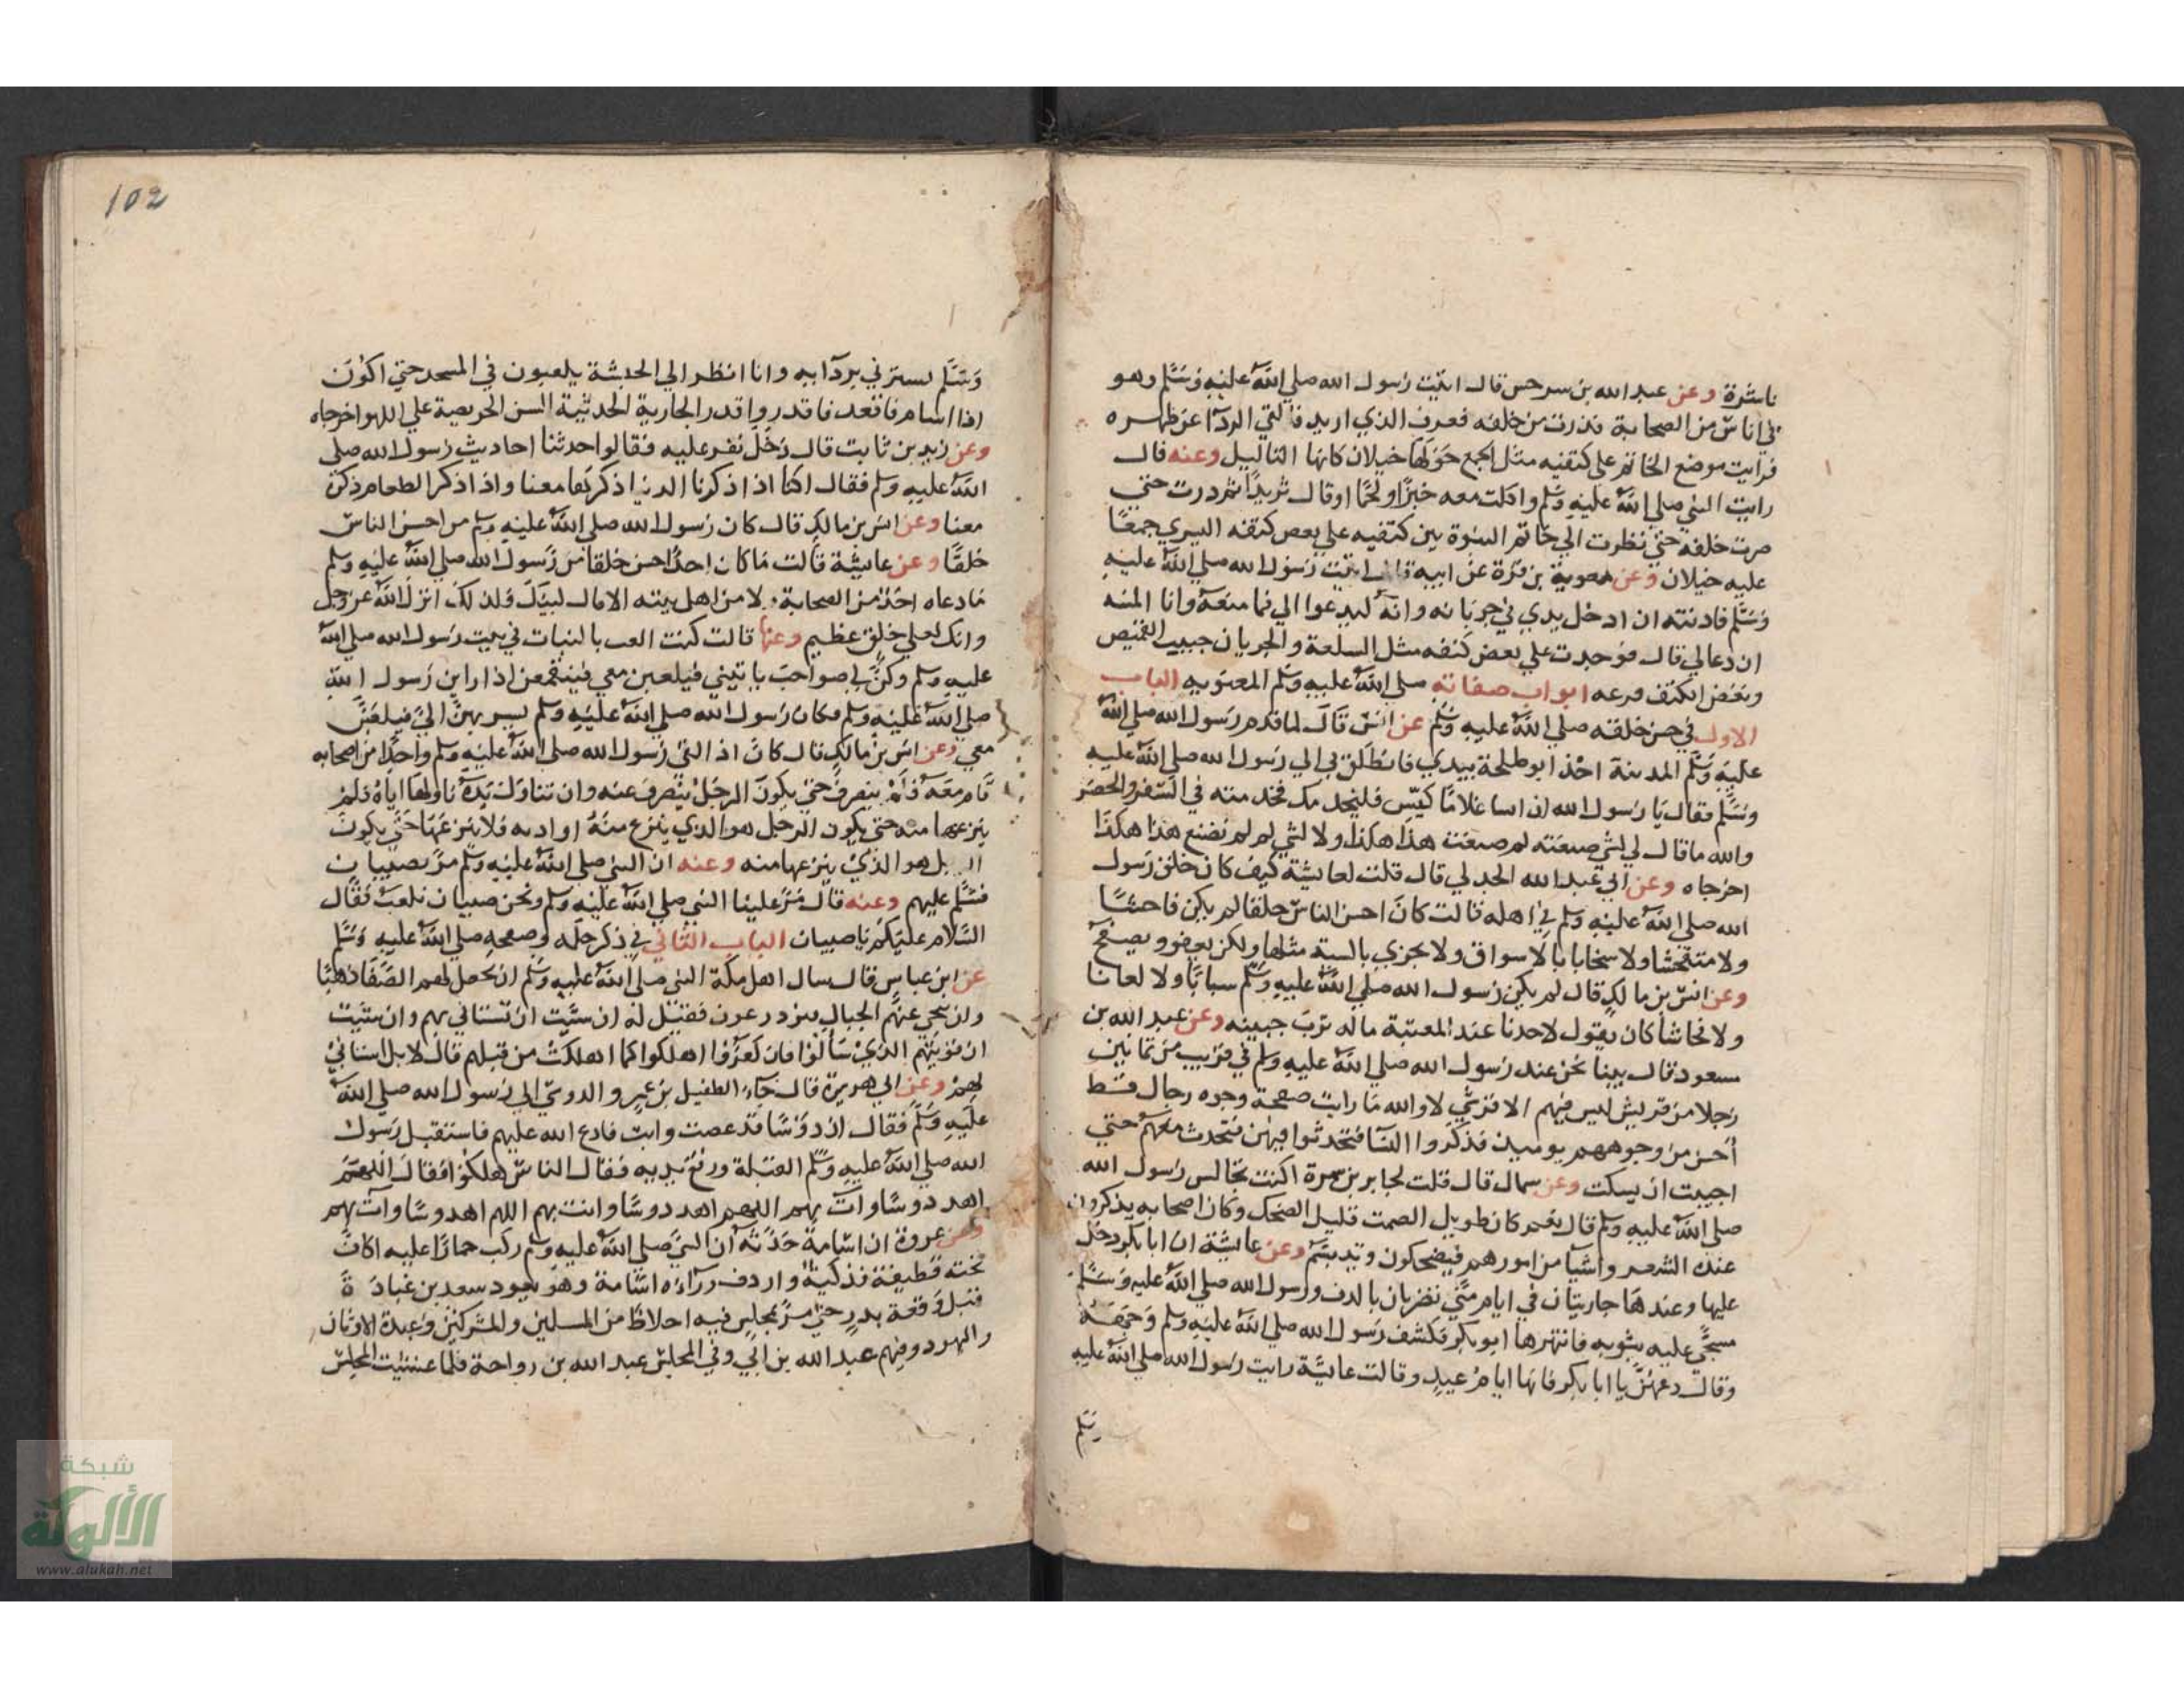 ناشزة وعن عبد الله بن سرجس قال اتيت رسول الله صلي الله عليه وسلم وهو
في اناس من الصحابة فدرت من خلفه فعرف الذي اريد فالقي الردآ عن ظهره
فرايت موضع الخاتم علي كتفيه مثل الجمع حولها خيلان كانها الثاليل وعنه قال
رايت النبي صلي الله عليه وسلم واكلت معه خبزا ولحما او قال ثريدا ثم درت حتي
صرت خلفه حتي نظرت الي خاتم النبوة بين كتفيه علي بعض كتفه اليسري جمعا
عليه خيلان وعن معوية بن قرة عن ابيه قال اتيت رسول الله صلي الله عليه
وسلم فاذنته ان ادخل يدي في جربانه وانه ليدعوا لي فما منعه وانا المسه
ان دعالي قال فوجدت علي بعض كتفه مثل السلعة والجربان جبيب القميص
وبعض الكتف فرعه ابواب صفاته صلي الله عليه وسلم المعنويه الباب
الاول في حسن خلقه صلي الله عليه وسلم عن انس قال لما قدم رسول الله صلي الله
عليه وسلم المدينة اخذ ابو طلحة بيدي فانطلق بي الي رسول الله صلي الله عليه
وسلم فقال يا رسول الله ان انسا غلاما كيس فليخدمك فخدمته في السفر والحضر
والله ما قال لي لشي صنعته لم صنعت هذا هكذا ولا لشي لم لم تصنع هذا هكذا
اخرجاه وعن ابي عبد الله الجدلي قال قلت لعايشة كيف كان خلق رسول
الله صلي الله عليه وسلم في اهله قالت كان احسن الناس خلقا لم يكن فاحشا
ولا متفحشا ولا سخابا بالاسواق ولا يجزي بالسية مثلها ولكن يعفو ويصفح
وعن انس بن مالك قال لم يكن رسول الله صلي الله عليه وسلم سبابا ولا لعانا
ولا فحاشا كان يقول لاحدنا عند المعتبة ماله ترب جبينه وعن عبد الله بن
مسعود قال بينا نحن عند رسول الله صلي الله عليه وسلم في قريب من ثمانين
رجلا من قريش ليس فيهم الا قرشي لا والله ما رايت صفحة وجوه رجال قط
احسن من وجوههم يوميذ فذكروا النسا فتحدثوا فيهن فتحدث معهم حتي
احببت ان يسكت وعن سماك قال قلت لجابر بن سمرة اكنت تجالس رسول الله
صلي الله عليه وسلم قال نعم كان طويل الصمت قليل الضحك وكان اصحابه يذكرون
عنده الشعر واشيآ من امورهم فيضحكون وتبسم وعن عايشة ان ابا بكر دخل
عليها وعندها جاريتان في ايام مني تضربان بالدف ورسول الله صلي الله عليه وسلم
مسجي عليه بثوبه فانتهرها ابو بكر فكشف رسول الله صلي الله عليه وسلم وجهه
وقال دعهن يا ابا بكر فانها ايام عيد وقالت عايشة رايت رسول الله صلي الله عليه
وسلم
102
وسلم يسترني بردآيه وانا انظر الي الحبشة يلعبون في المسجد حتي اكون
انا اسام فاقعد فاقدروا قدر الجارية الحديثة السن الحريصة علي اللهو اخرجاه
وعن زيد بن ثابت قال دخل نفر عليه فقالوا حدثنا احاديث رسول الله صلي
الله عليه وسلم فقال كنا اذا ذكرنا الدنيا ذكرها معنا واذا ذكر الطعام ذكره
معنا وعن انس بن مالك قال كان رسول الله صلي الله عليه وسلم من احسن الناس
خلقا وعن عايشة قالت ما كان احد احسن خلقا من رسول الله صلي الله عليه وسلم
ما دعاه احد من الصحابة ولا من اهل بيته الا قال لبيك ولذلك انزل الله عز وجل
وانك لعلي خلق عظيم وعنها قالت كنت العب بالبنات في بيت رسول الله صلي الله
عليه وسلم وكن لي صواحب ياتيني فيلعبن معي فينقمعن اذا راين رسول الله
صلي الله عليه وسلم فكان رسول الله صلي الله عليه وسلم يسر بهن الي فيلعبن
معي وعن انس بن مالك قال كان اذا لقي رسول الله صلي الله عليه وسلم واحدا من اصحابه
قام معه فلم ينصرف حتي يكون الرجل ينصرف عنه وان تناول يده ناولها اياه فلم
ينزعها منه حتي يكون الرجل هو الذي ينزع منه او اذنه فلا ينزعها حتي يكون
الرجل هو الذي ينزعها منه وعنه ان النبي صلي الله عليه وسلم مر بصبيان
فسلم عليهم وعنه قال مر علينا النبي صلي الله عليه وسلم ونحن صبيان نلعب فقال
السلام عليكم يا صبيان الباب الثاني في ذكر حلمه وصفحه صلي الله عليه وسلم
عن ابن عباس قال سال اهل مكة النبي صلي الله عليه وسلم ان يجعل لهم الصفا ذهبا
وان ينحي عنهم الجبال فيزدرعون فقيل له ان شيت ان تستاني بهم وان شيت
ان نوتيهم الذي سالوا فان كفروا اهلكوا كما اهلكت من قبلهم قال لا بل استاني
بهم وعن ابي هريرة قال جآ الطفيل بن عمرو الدوسي الي رسول الله صلي الله
عليه وسلم فقال ان دوسا قد عصت وابت فادع الله عليهم فاستقبل رسول
الله صلي الله عليه وسلم القبلة ورفع يديه فقال الناس هلكوا فقال اللهم
اهد دوسا وآت بهم اللهم اهد دوسا وائت بهم اللهم اهد دوسا وآت بهم
وعن عروة ان اسامة حدثه ان النبي صلي الله عليه وسلم ركب حمارا عليه اكاف
تحته قطيفة فذكية واردف ورآءه اسامة وهو يعود سعد بن عبادة
قبل وقعة بدر حتي مر بمجلس فيه اخلاط من المسلمين والمشركين وعبدة الاوثان
واليهود وفيهم عبد الله بن ابي وفي المجلس عبد الله بن رواحة فلما غشيت المجلس
شبكة
الألوكة
www.alukah.net